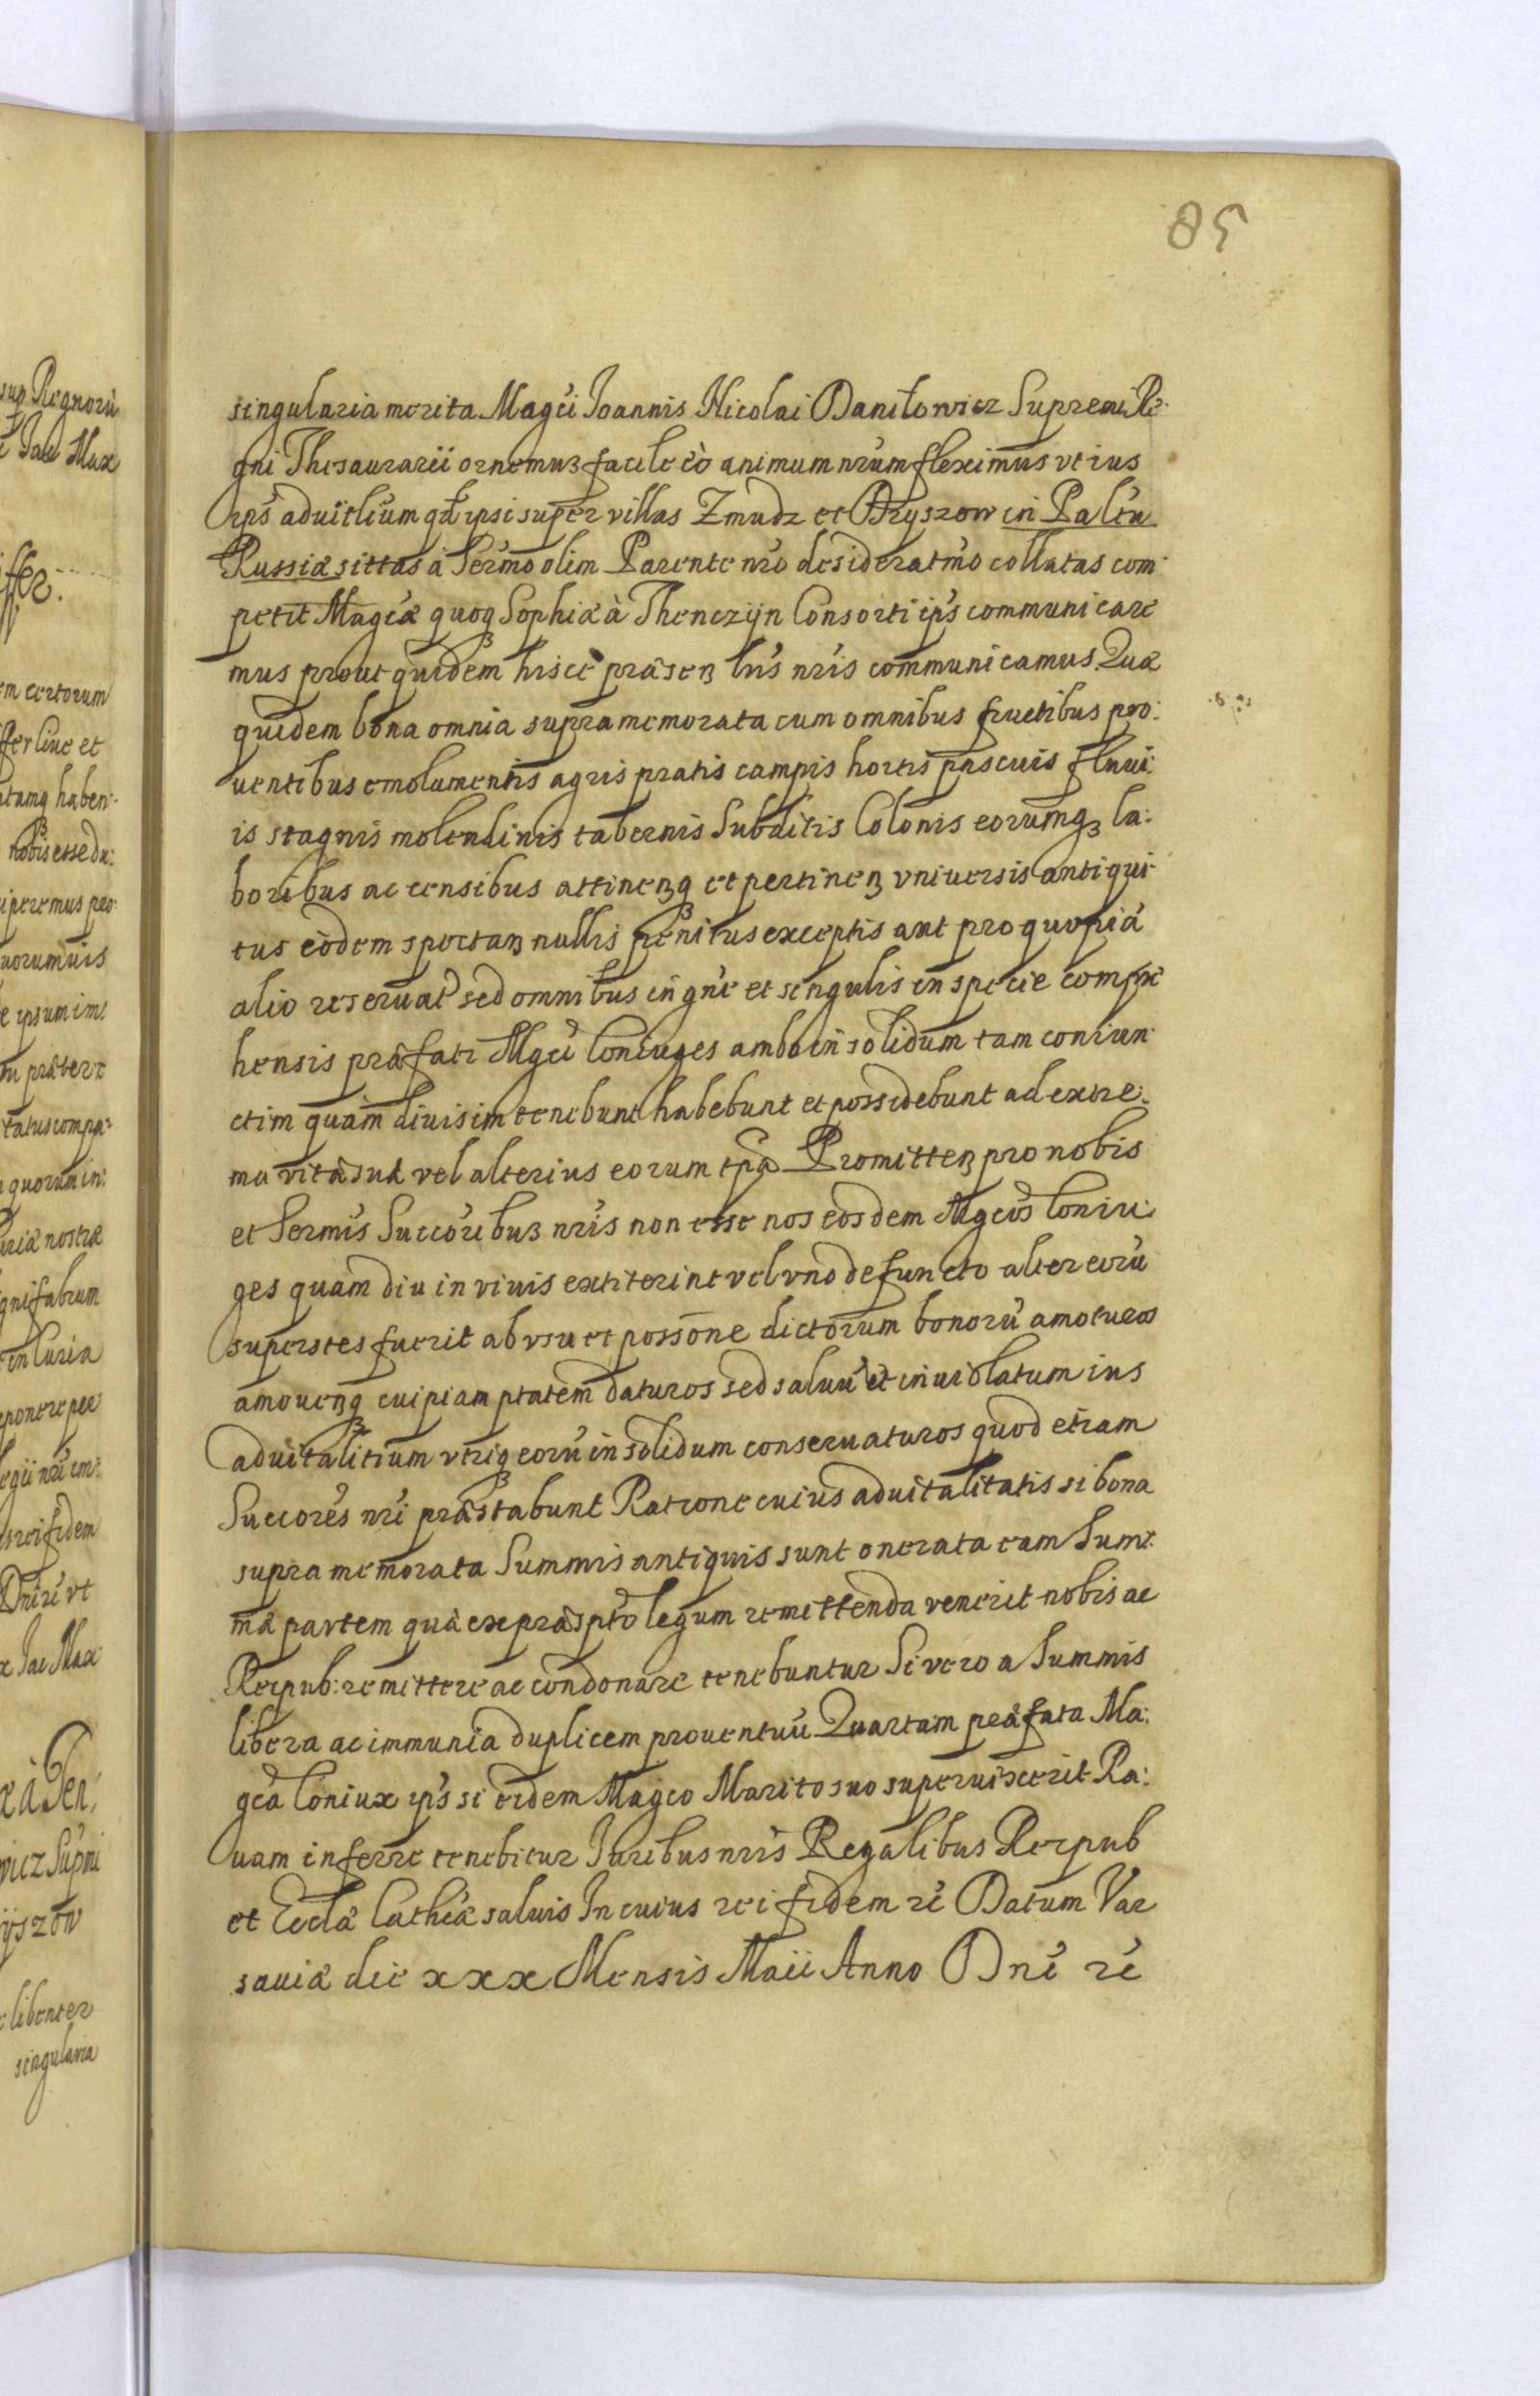 58
singularia merita Magci Joannis Nicolai Daniłowicz Supremi Re:
gni Thesaurarii ornemus facile eò animum nrum fleximus vt ius
ips aduitlium qd ipsi super villas Zmudz et Dryszow in Paltu
Russiæ sittas à Sermo olim Parente nro desideratmo collatas com:
petit Magcæ quoq Sophiæ à Thenczijn Consorti ips communicare
mus prout quidem hisce præsen lris nris communicamus Quæ
quidem bona omnia supramemorata cum omnibus fructibus pro:
uentibus emolumentis agris pratis campis hortis pascuis fluui:
is stagnis molendinis tabernis Subditis Colonis eorumq la:
boribus ac censibus attinenq et pertinen vniuersis antiqui:
tus eòdem spectan nullis penitus exceptis aut pro quopiã
alio reseruat sed omnibus in gne et singulis in specie compre
hensis præfati Mgci Coniuges ambo in solidum tam coniun:
ctim quàm diuisim tenebunt habebunt et possidebunt ad extre:
ma vitæ suæ vel alterius eorum tpa Promitten pro nobis
et Sermis Succoribus nris non esse nos eosdem Mgcos Coniu:
ges quam diu in viuis extiterint vel vno defuncto alter eorũ
superstes fuerit ab vsu et possone dictorum bonorũ amoturos
amouenq cuipiam ptatem daturos sed saluũ et inuiolatum ius
aduitalitium vtriq eorũ in solidum conseruaturos quod etiam
Succores nri præstabunt Ratione cuius aduitalitatis si bona
supra memorata Summis antiquis sunt onerata eam Sum:
mæ partem quæ ex præspto legum remittenda venerit nobis ac
Reipub: remittere ac condonare tenebuntur Si vero a Summis
libera ac immunia duplicem prouentuũ Quartam præfata Ma:
gca Coniux ips si eidem Magco Marito suo superuixerit Ra:
uam inferre tenebitur Juribus nris Regalibus Reipub
et Ecclæ Cathcæ saluis In cuius rei fidem rẽ Datum Var
sauiæ die xxx Mensis Maii Anno Dni rẽ